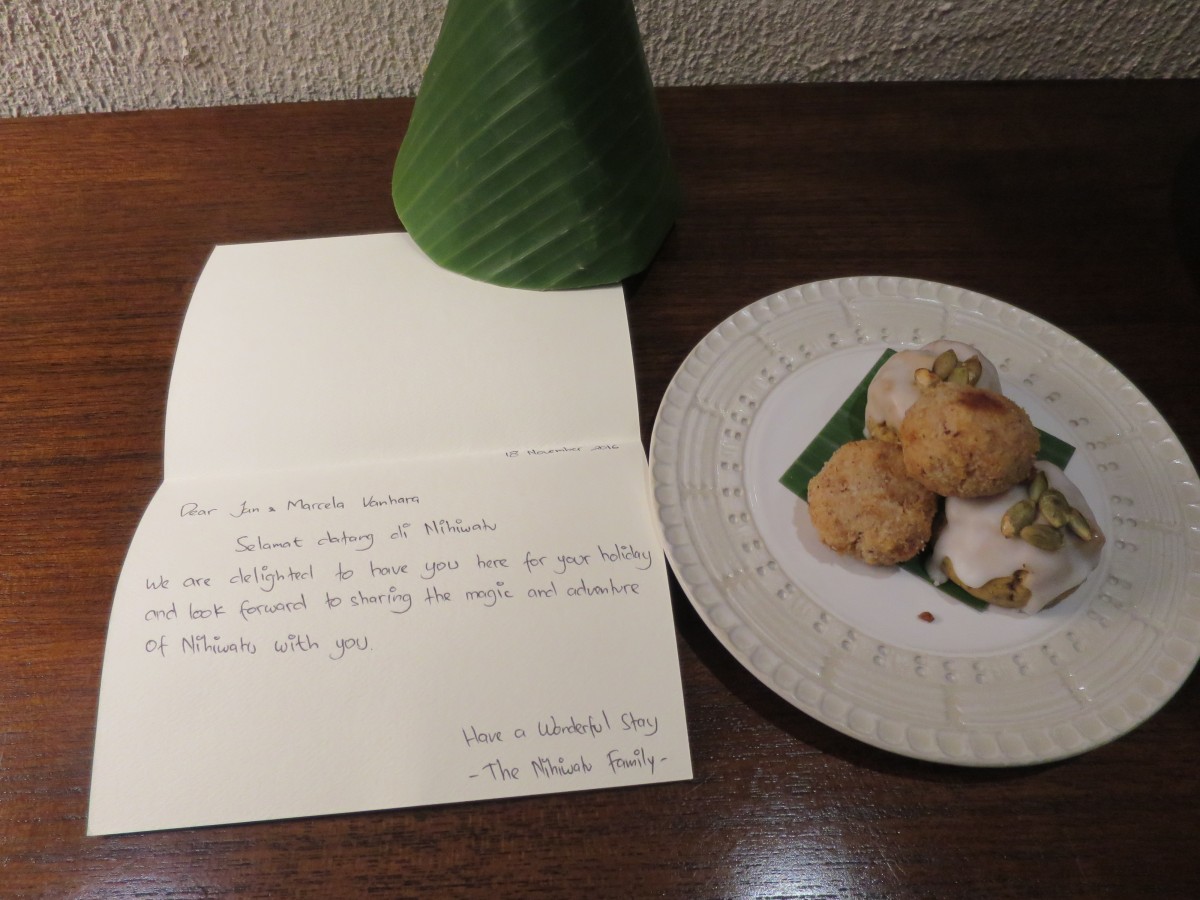 18 November 2016
Dear Jan & Marcela Vanhara
Selamat datang di Nihiwatu
We are delighted to have you here for your holiday
and look forward to sharing the magic and adventure
of Nihiwatu with you.
Have a Wonderful Stay
- The Nihiwatu Family -